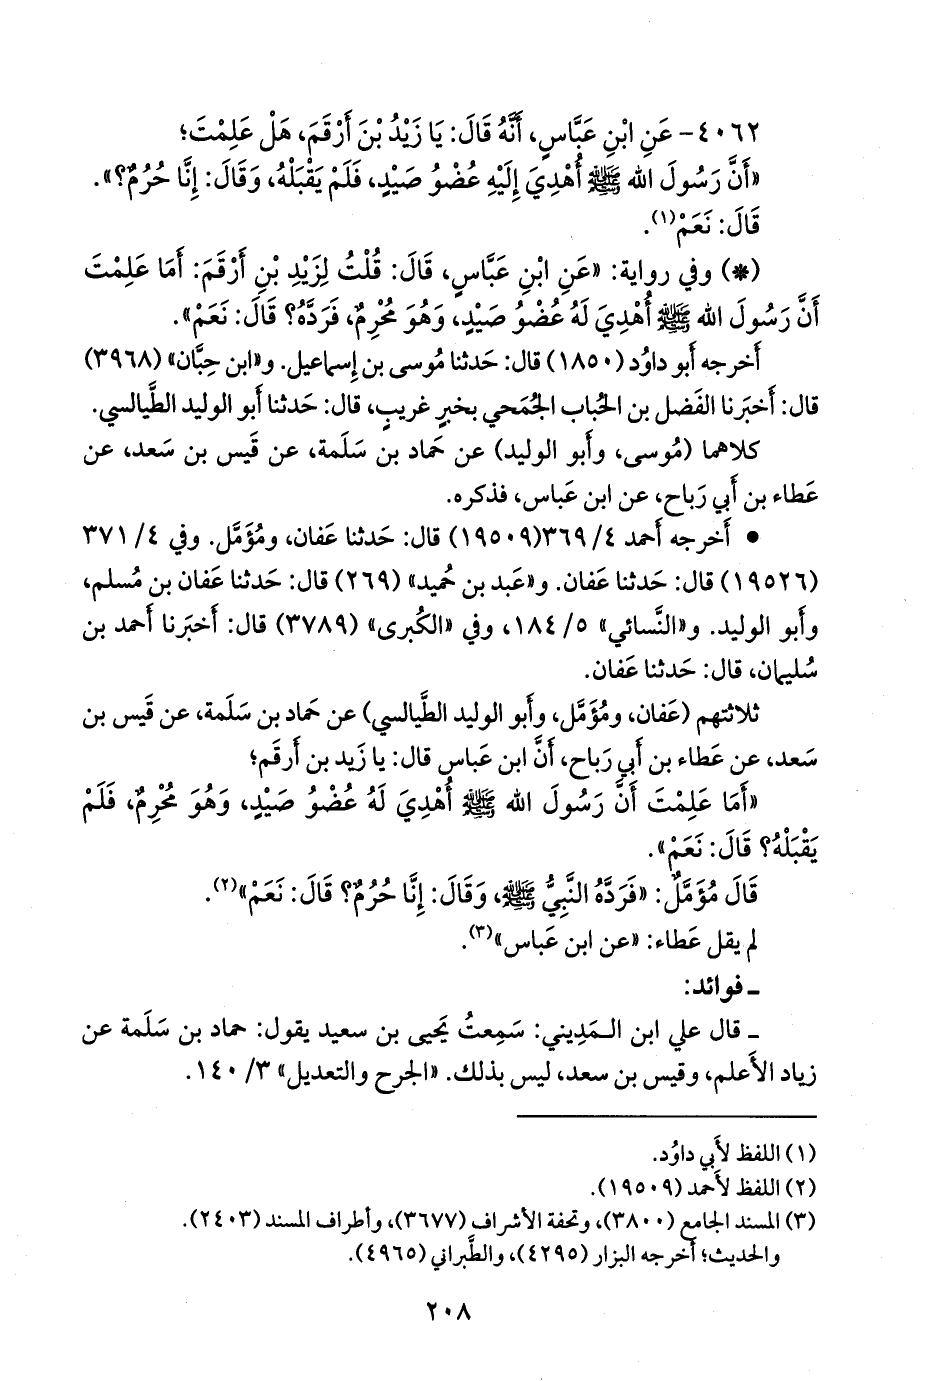 ٤٠٦٢- عَنِ ابْنِ عَبَّاسٍ، أَنَّهُ قَالَ: يَا زَيْدُ بْنَ أَرْقَمَ، هَلْ عَلِمْتَ؛
«أَنَّ رَسُولَ الله ﷺ أُهْدِيَ إِلَيْهِ عُضْوُ صَيْدٍ، فَلَمْ يَقْبَلْهُ، وَقَالَ: إِنَّا حُرُمٌ؟».
قَالَ: نَعَمْ(١).
(*) وفي رواية: «عَنِ ابْنِ عَبَّاسٍ، قَالَ: قُلْتُ لِزَيْدِ بْنِ أَرْقَمَ: أَمَا عَلِمْتَ
أَنَّ رَسُولَ الله ﷺ أُهْدِيَ لَهُ عُضْوُ صَيْدٍ، وَهُوَ مُحْرِمٌ، فَرَدَّهُ؟ قَالَ: نَعَمْ».
أَخرجه أَبو داوُد (١٨٥٠) قال: حَدثنا مُوسى بن إِسماعيل. و«ابن حِبَّان» (٣٩٦٨)
قال: أَخبَرنا الفَضل بن الحُباب الجُمَحي بخبرٍ غريبٍ، قال: حَدثنا أَبو الوليد الطَّيالسي.
كلاهما (مُوسى، وأَبو الوليد) عن حَماد بن سَلَمة، عن قَيس بن سَعد، عن
عَطاء بن أَبي رَباح، عن ابن عَباس، فذكره.
• أَخرجه أَحمد ٤/ ٣٦٩(١٩٥٠٩) قال: حَدثنا عَفان، ومُؤَمَّل. وفي ٤/ ٣٧١
(١٩٥٢٦) قال: حَدثنا عَفان. و«عَبد بن حُميد» (٢٦٩) قال: حَدثنا عَفان بن مُسلم،
وأَبو الوليد. و«النَّسائي» ٥/ ١٨٤، وفي «الكُبرى» (٣٧٨٩) قال: أَخبَرنا أَحمد بن
سُليمان، قال: حَدثنا عَفان.
ثلاثتهم (عَفان، ومُؤَمَّل، وأَبو الوليد الطَّيالسي) عن حَماد بن سَلَمة، عن قَيس بن
سَعد، عن عَطاء بن أَبي رَباح، أَنَّ ابن عَباس قال: يا زَيد بن أَرقَم؛
«أَمَا عَلِمْتَ أَنَّ رَسُولَ الله ﷺ أُهْدِيَ لَهُ عُضْوُ صَيْدٍ، وَهُوَ مُحْرِمٌ، فَلَمْ
يَقْبَلْهُ؟ قَالَ: نَعَمْ».
قَالَ مُؤَمَّلٌ: «فَرَدَّهُ النَّبِيُّ ﷺ، وَقَالَ: إِنَّا حُرُمٌ؟ قَالَ: نَعَمْ»(٢).
لم يقل عَطاء: «عن ابن عَباس»(٣).
ـ فوائد:
ـ قال علي ابن الـمَدِيني: سَمِعتُ يَحيى بن سعيد يقول: حماد بن سَلَمة عن
زياد الأَعلم، وقيس بن سعد، ليس بذلك. «الجرح والتعديل» ٣/ ١٤٠.
(١) اللفظ لأَبي داوُد.
(٢) اللفظ لأَحمد (١٩٥٠٩).
(٣) المسند الجامع (٣٨٠٠)، وتحفة الأشراف (٣٦٧٧)، وأطراف المسند (٢٤٠٣).
والحديث؛ أخرجه البزار (٤٢٩٥)، والطَّبراني (٤٩٦٥).
٢٠٨